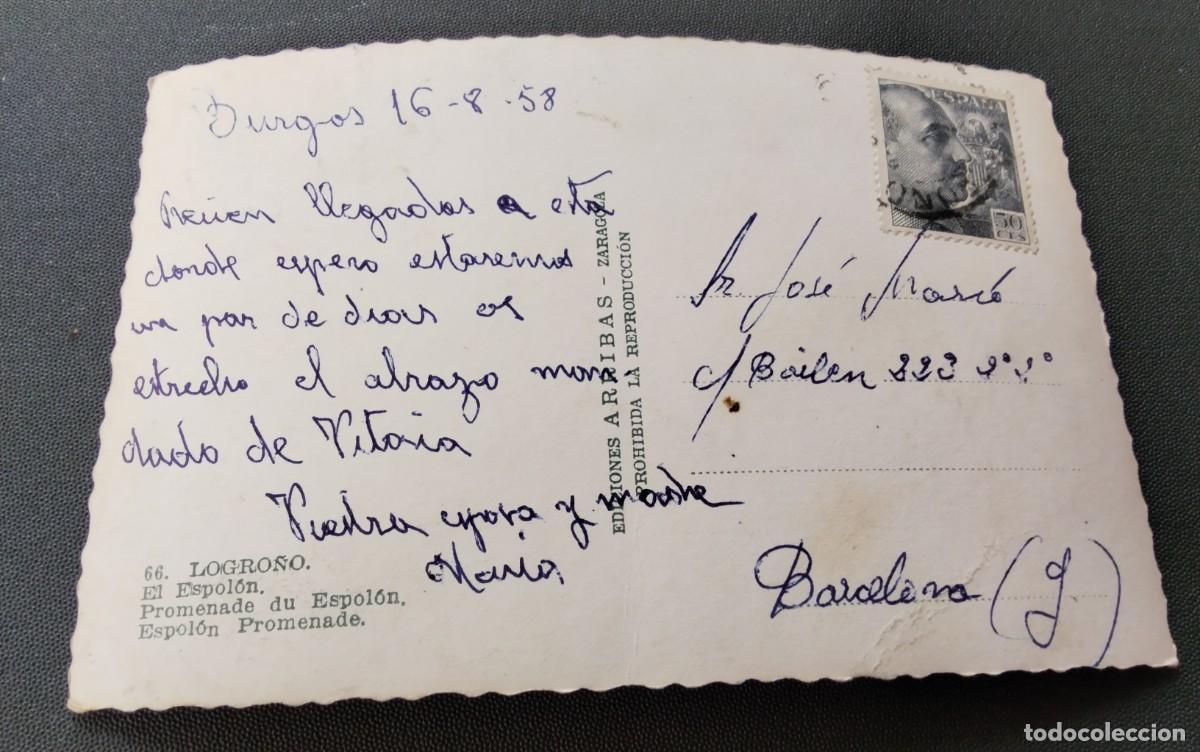 Burgos 16-8-58
Recien llegados a esta
donde espero estaremos
un par de dias os
estrecho el abrazo man
dado de Vitoria
Vuestra esposa y madre
Maria
66. LOGROÑO.
El Espolón.
Promenade du Espolón.
Espolón Promenade.
EDICIONES ARRIBAS - ZARAGOZA
PROHIBIDA LA REPRODUCCIÓN
ESPAÑA
50
CTS
Sr. José Marcó
c/ Bailen 223 2º 2º
Barcelona (9)
todocoleccion